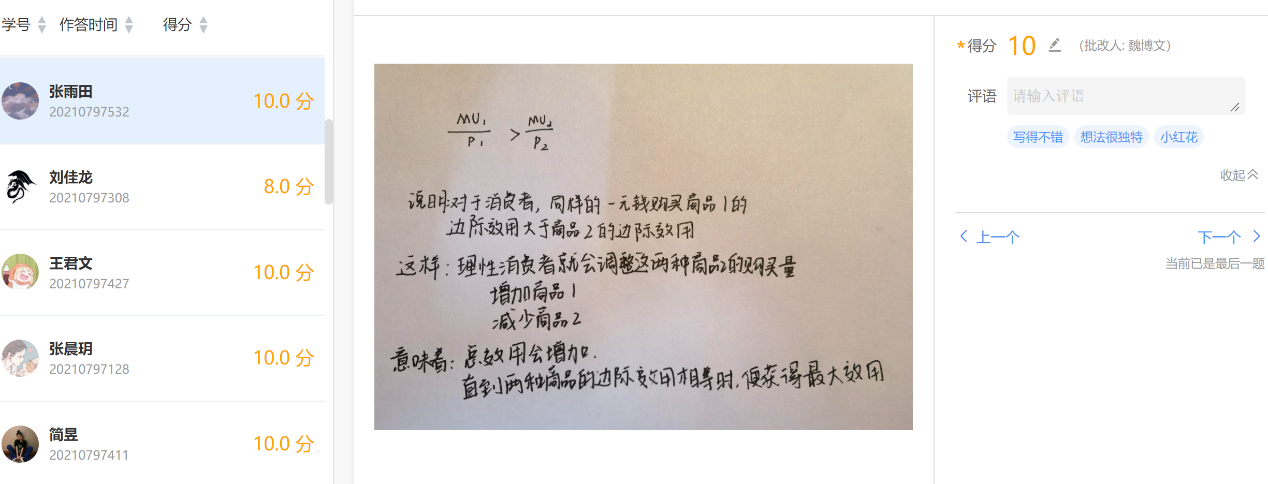 学号 作答时间 得分
张雨田
20210797532
10.0 分
刘佳龙
20210797308
8.0 分
王君文
20210797427
10.0 分
张晨玥
20210797128
10.0 分
简昱
20210797411
10.0 分
MU₁/P₁ > MU₂/P₂
说明:对于消费者,同样的一元钱购买商品1的
边际效用大于商品2的边际效用
这样:理性消费者就会调整这两种商品的购买量
增加商品1
减少商品2
意味着:总效用会增加.
直到两种商品的边际效用相等时,便获得最大效用
*得分 10 (批改人: 魏博文)
评语 请输入评语
写得不错 想法很独特 小红花
收起
上一个 下一个
当前已是最后一题